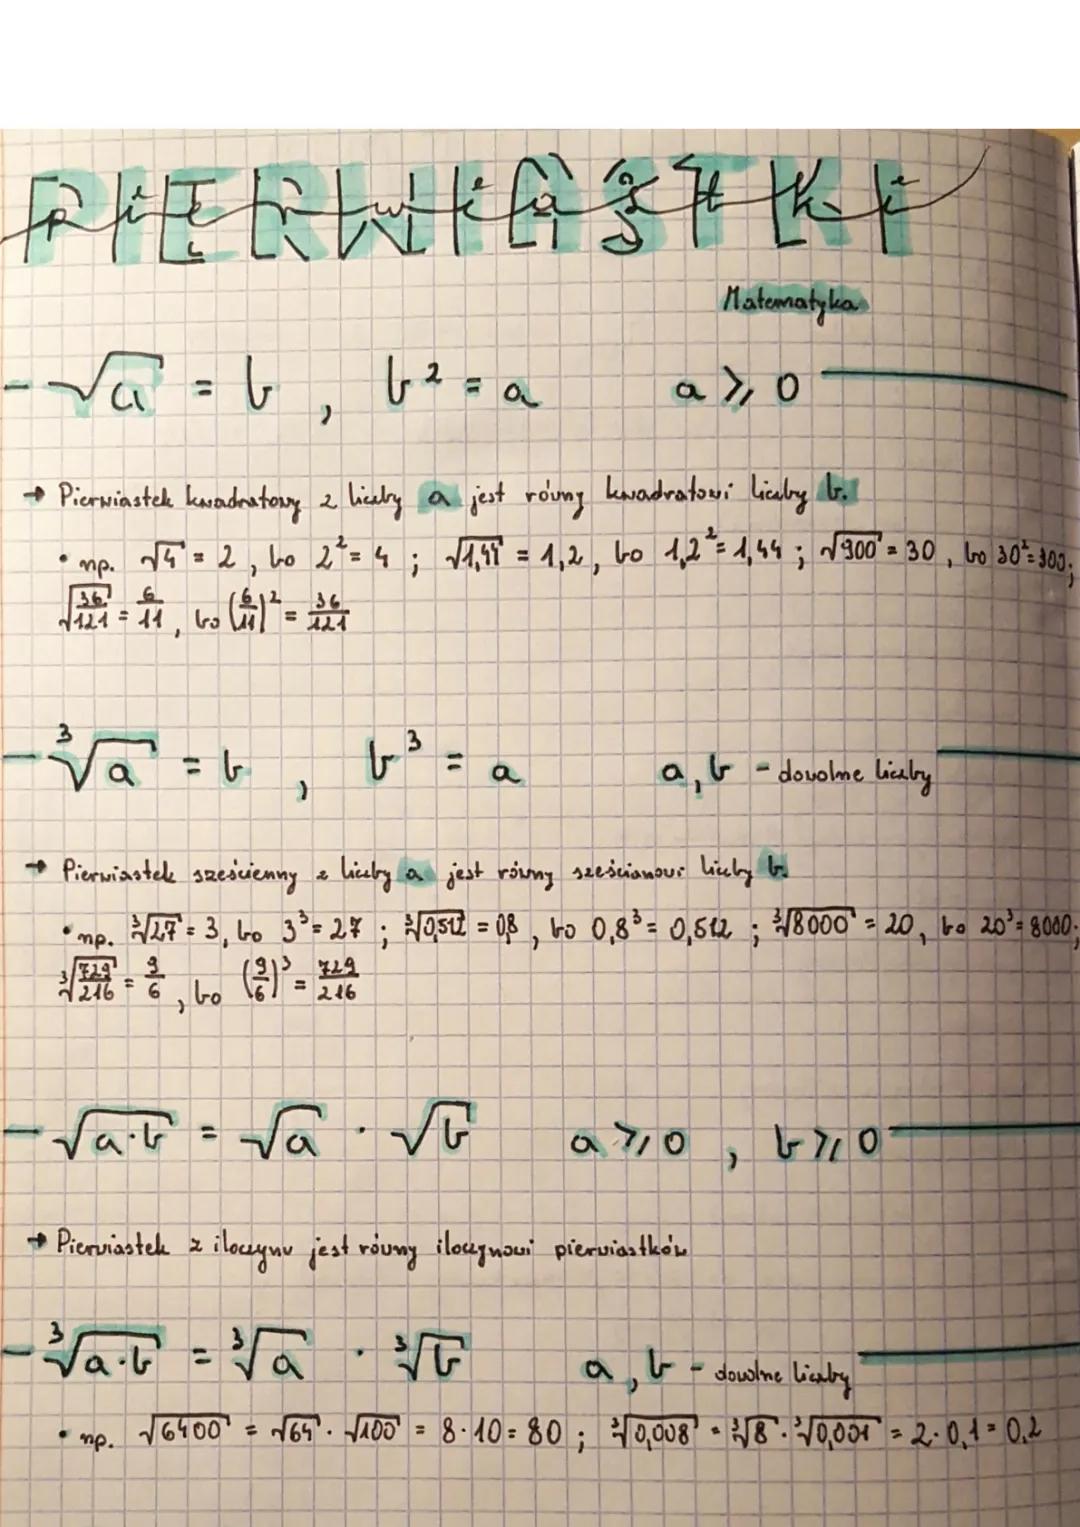 PIERWIASTKI
Matematyka
- √a = b , b² = a a ⩾ 0
→ Pierwiastek kwadratowy z liczby a jest równy kwadratowi liczby b.
• np. √4 = 2, bo 2² = 4 ; √1,44 = 1,2, bo 1,2² = 1,44 ; √900 = 30, bo 30² = 900;
√36/121 = 6/11, bo (6/11)² = 36/121
- ³√a = b , b³ = a a, b - dowolne liczby
→ Pierwiastek sześcienny z liczby a jest równy sześcianowi liczby b.
• np. ³√27 = 3, bo 3³ = 27 ; ³√0,512 = 0,8, bo 0,8³ = 0,512 ; ³√8000 = 20, bo 20³ = 8000;
³√729/216 = 9/6, bo (9/6)³ = 729/216
- √a·b = √a · √b a ⩾ 0 , b ⩾ 0
→ Pierwiastek z iloczynu jest równy iloczynowi pierwiastków
- ³√a·b = ³√a · ³√b a, b - dowolne liczby
• np. √6400 = √64 · √100 = 8·10 = 80 ; ³√0,008 = ³√8 · ³√0,001 = 2·0,1 = 0,2